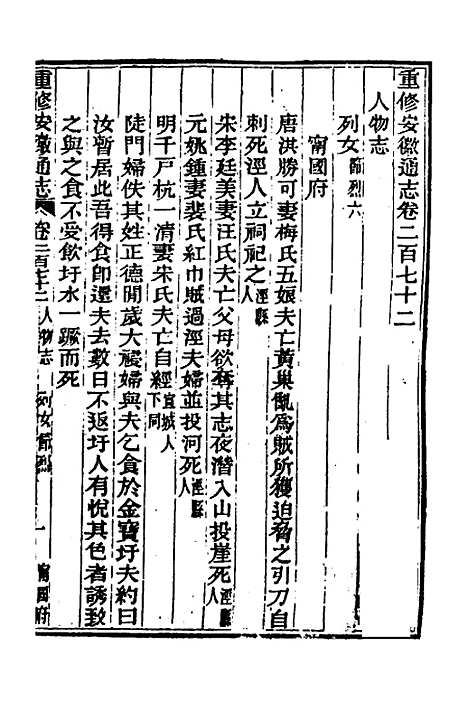 重修安徽通志卷二百七十二
人物志
列女節烈六
甯國府
唐洪勝可妻梅氏五娘夫亡黃巢亂爲賊所獲迫脅之引刀自
刺死涇人立祠祀之涇縣人
宋李廷美妻汪氏夫亡父母欲奪其志夜潛入山投崖死涇縣人
元姚鍾妻裴氏紅巾賊過涇夫婦並投河死涇縣人
明千戸杭一清妻朱氏夫亡自經宣城人下同
陡門婦佚其姓正德間歲大祲婦與夫乞食於金寶圩夫約曰
汝暫居此吾得食卽還夫去數日不返圩人有悅其色者誘致
之與之食不受飲圩水一蹶而死
重修安徽通志 卷二百七十二 人物志 列女節烈 一 甯國府